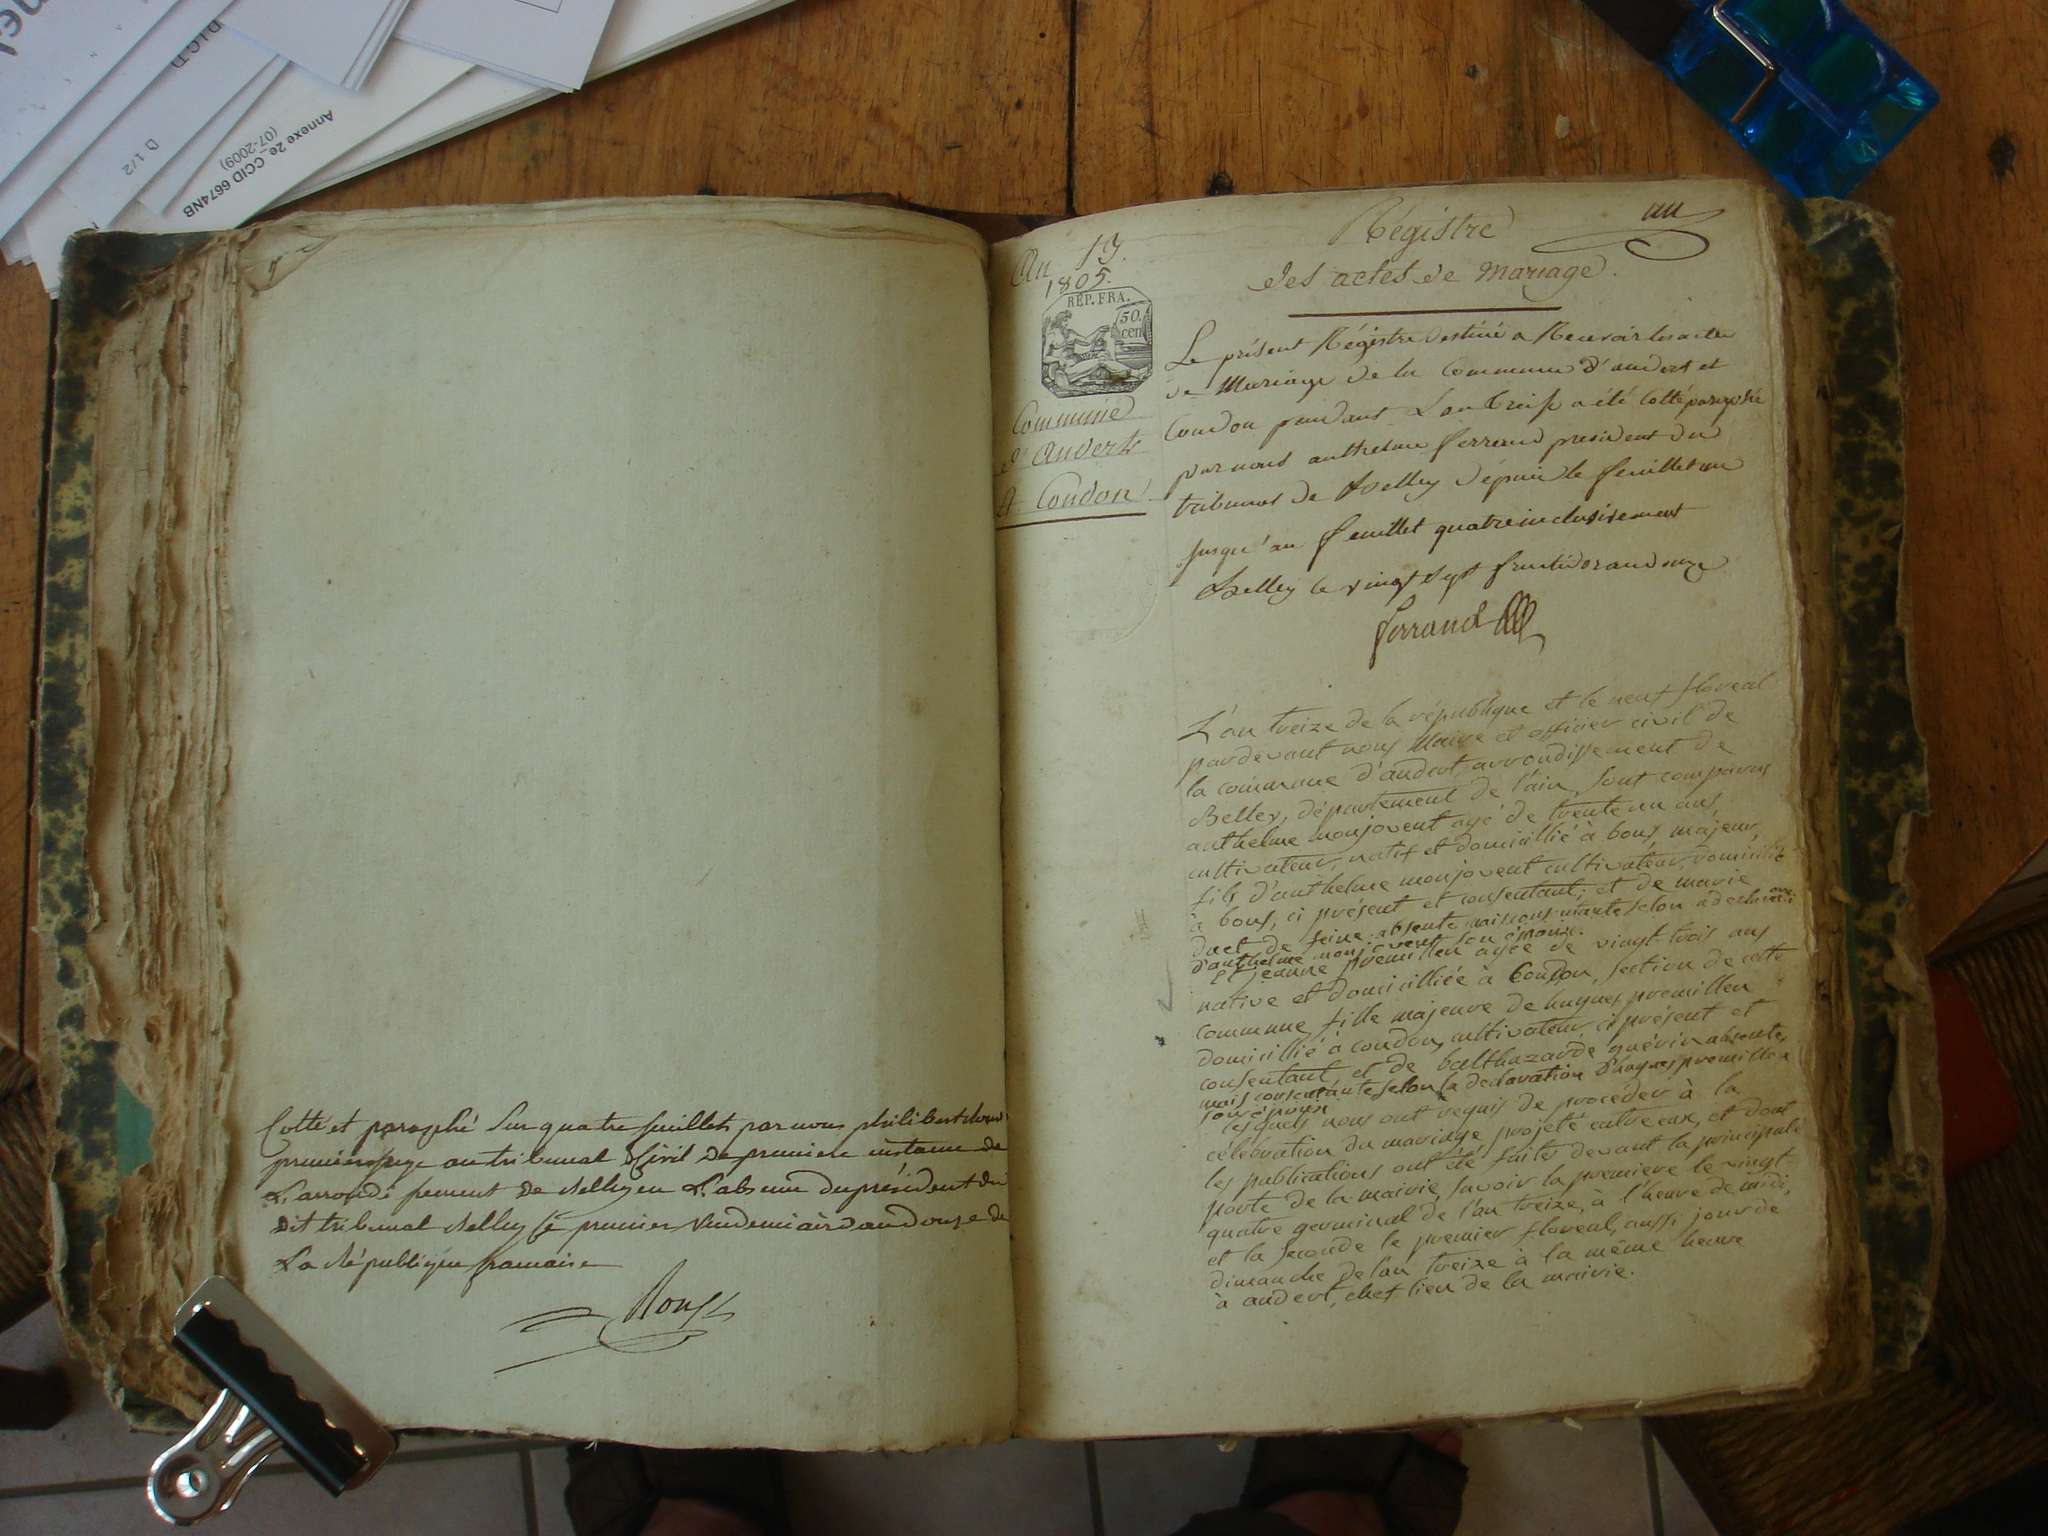 DICT
D 1/2
Annexe 2e_CCID 6674NB
(07-2009)
Cotté et paraphé sur quatre feuillets par nous philibert
premier juge au tribunal Civil de premiere instance de
L'arrondissement de Belley en L'absence du président du
dit tribunal Belley le premier vendemiaire an douze de
La République francaise
Roux
An 13.
1805.
RÉP. FRA.
50.
cen
Commune
d'Andert
et Condon
un
Régistre
des actes de mariage.
Le présent Régistre destiné a Recevoir les actes
de Mariage de la Commune d'andert et
Condon pendant L'an treize a été Cotté paraphé
par nous anthelme ferrand president du
tribunal de Belley dépuis le feuillet un
jusqu'au feuillet quatre inclusivement
Belley le vingt sept fructidor an douze
ferrand
L'an treize de la république et le neuf floreal
pardevant nous Maire et officier civil de
la commune d'andert, arrondissement de
Belley, département de l'ain, sont comparus
anthelme monjovent agé de trente un ans,
cultivateur, natif et domicillié à bons, majeur,
fils d'anthelme monjovent cultivateur, domicillié
à bons, ci présent et consentant; et de marie
absente mais consentante selon
d'anthelme monjovent son époux.
Et jeanne premillieu agée de vingt-trois ans
native et domicilliée à Condon, section de cette
commune, fille majeure de hugues premillieu
domicillié à condon, cultivateur, ci présent et
consentant et de balthazarde guérin absente,
mais consentante selon la declaration d'hugues premillieu
son époux
lesquels nous ont requis de proceder à la
célébration du mariage projeté entre eux, et dont
les publications ont été faites devant la principale
porte de la mairie, savoir la premiere le vingt
quatre germinal de l'an treize, à l'heure de midi,
et la seconde le premier floreal, aussi jour de
dimanche de l'an treize à la même heure
à andert, chef lieu de la mairie.